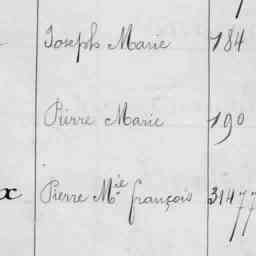 Joseph Marie 184
Pierre Marie 190
x Pierre Mie françois 31477